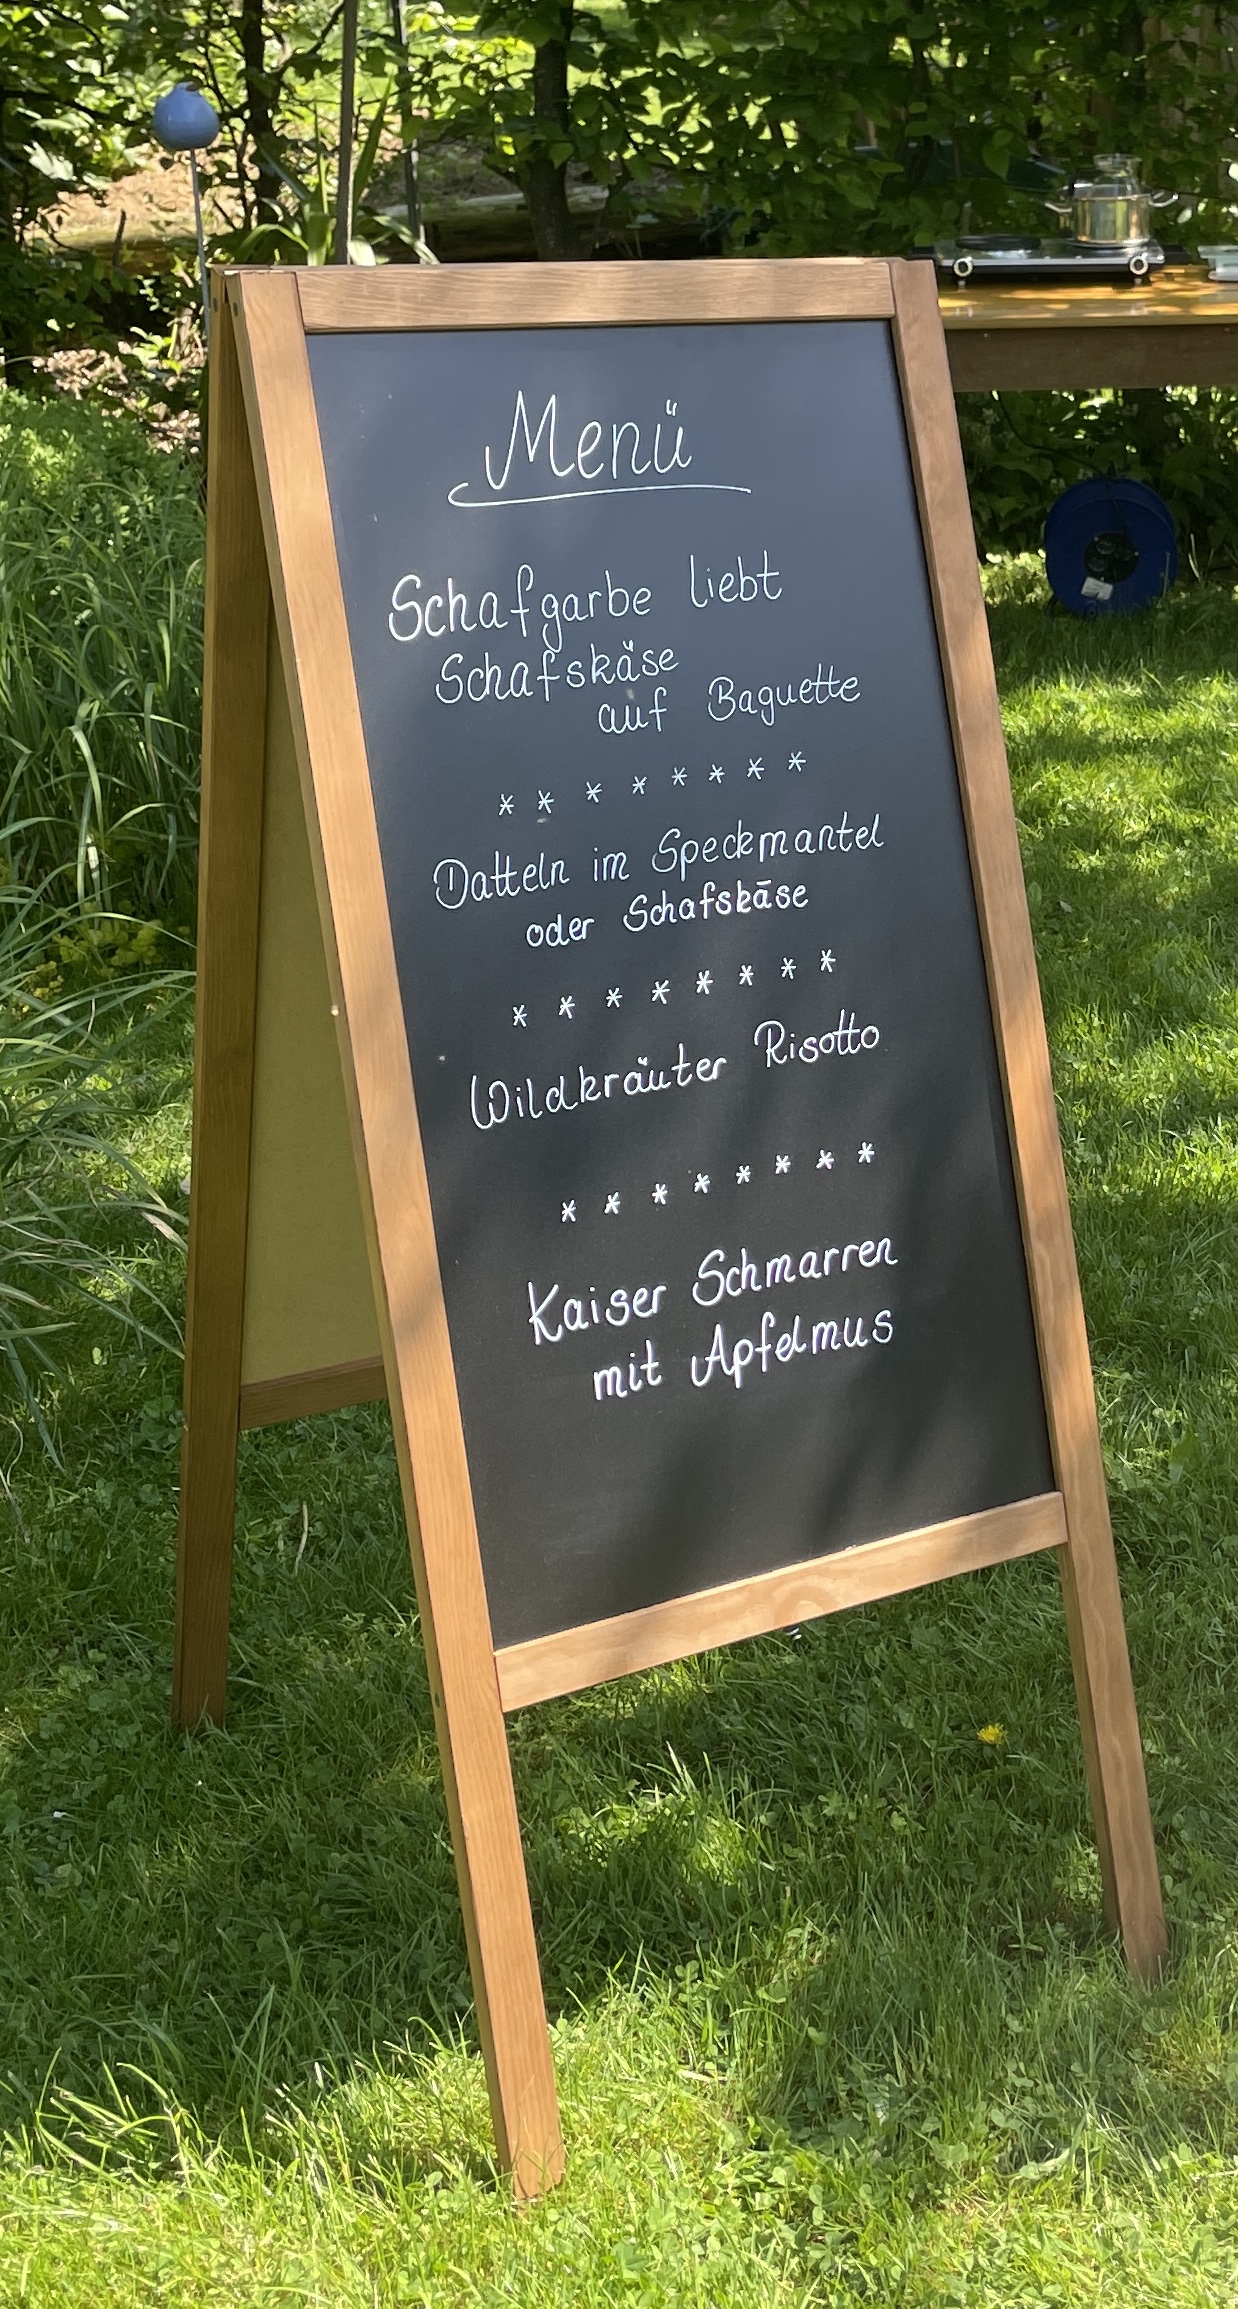 Menü
Schafgarbe liebt
Schafskäse
auf Baguette
* * * * * * * *
Datteln im Speckmantel
oder Schafskäse
* * * * * * * *
Wildkräuter Risotto
* * * * * * * *
Kaiser Schmarren
mit Apfelmus